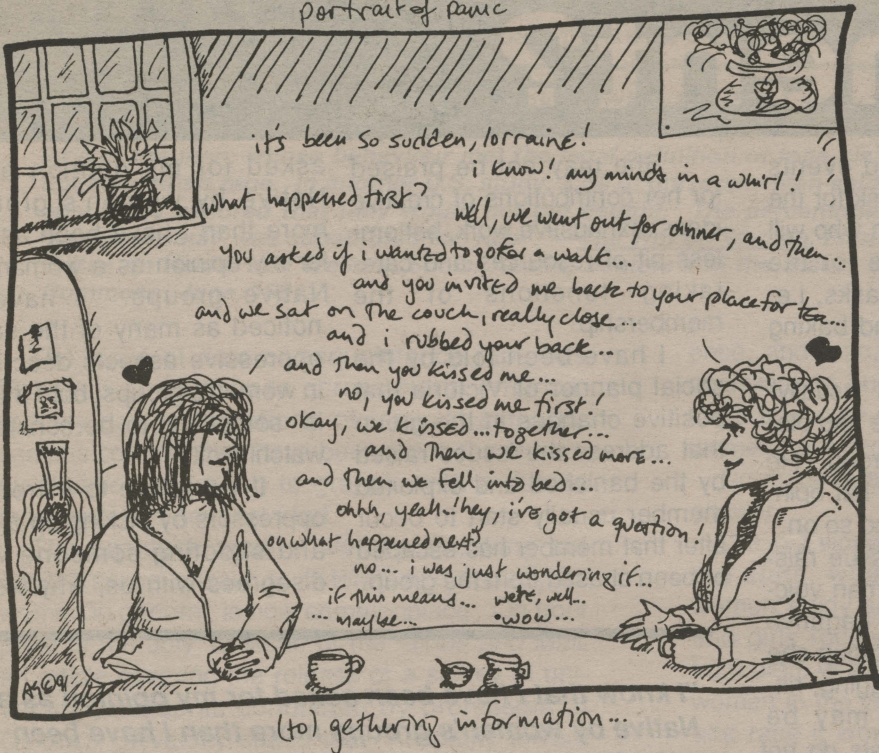 portrait of panic
it's been so sudden, lorraine!
i know! my mind's in a whirl!
what happened first?
well, we went out for dinner, and then...
you asked if i wanted to go for a walk...
and you invited me back to your place for tea...
and we sat on the couch, really close...
and i rubbed your back...
and then you kissed me...
no, you kissed me first!
okay, we kissed...together...
and then we kissed more...
and then we fell into bed...
ohhh, yeah..! hey, i've got a question!
on what happened next?
no... i was just wondering if...
if this means... we're, well...
... maybe... wow...
(to) gethering information...